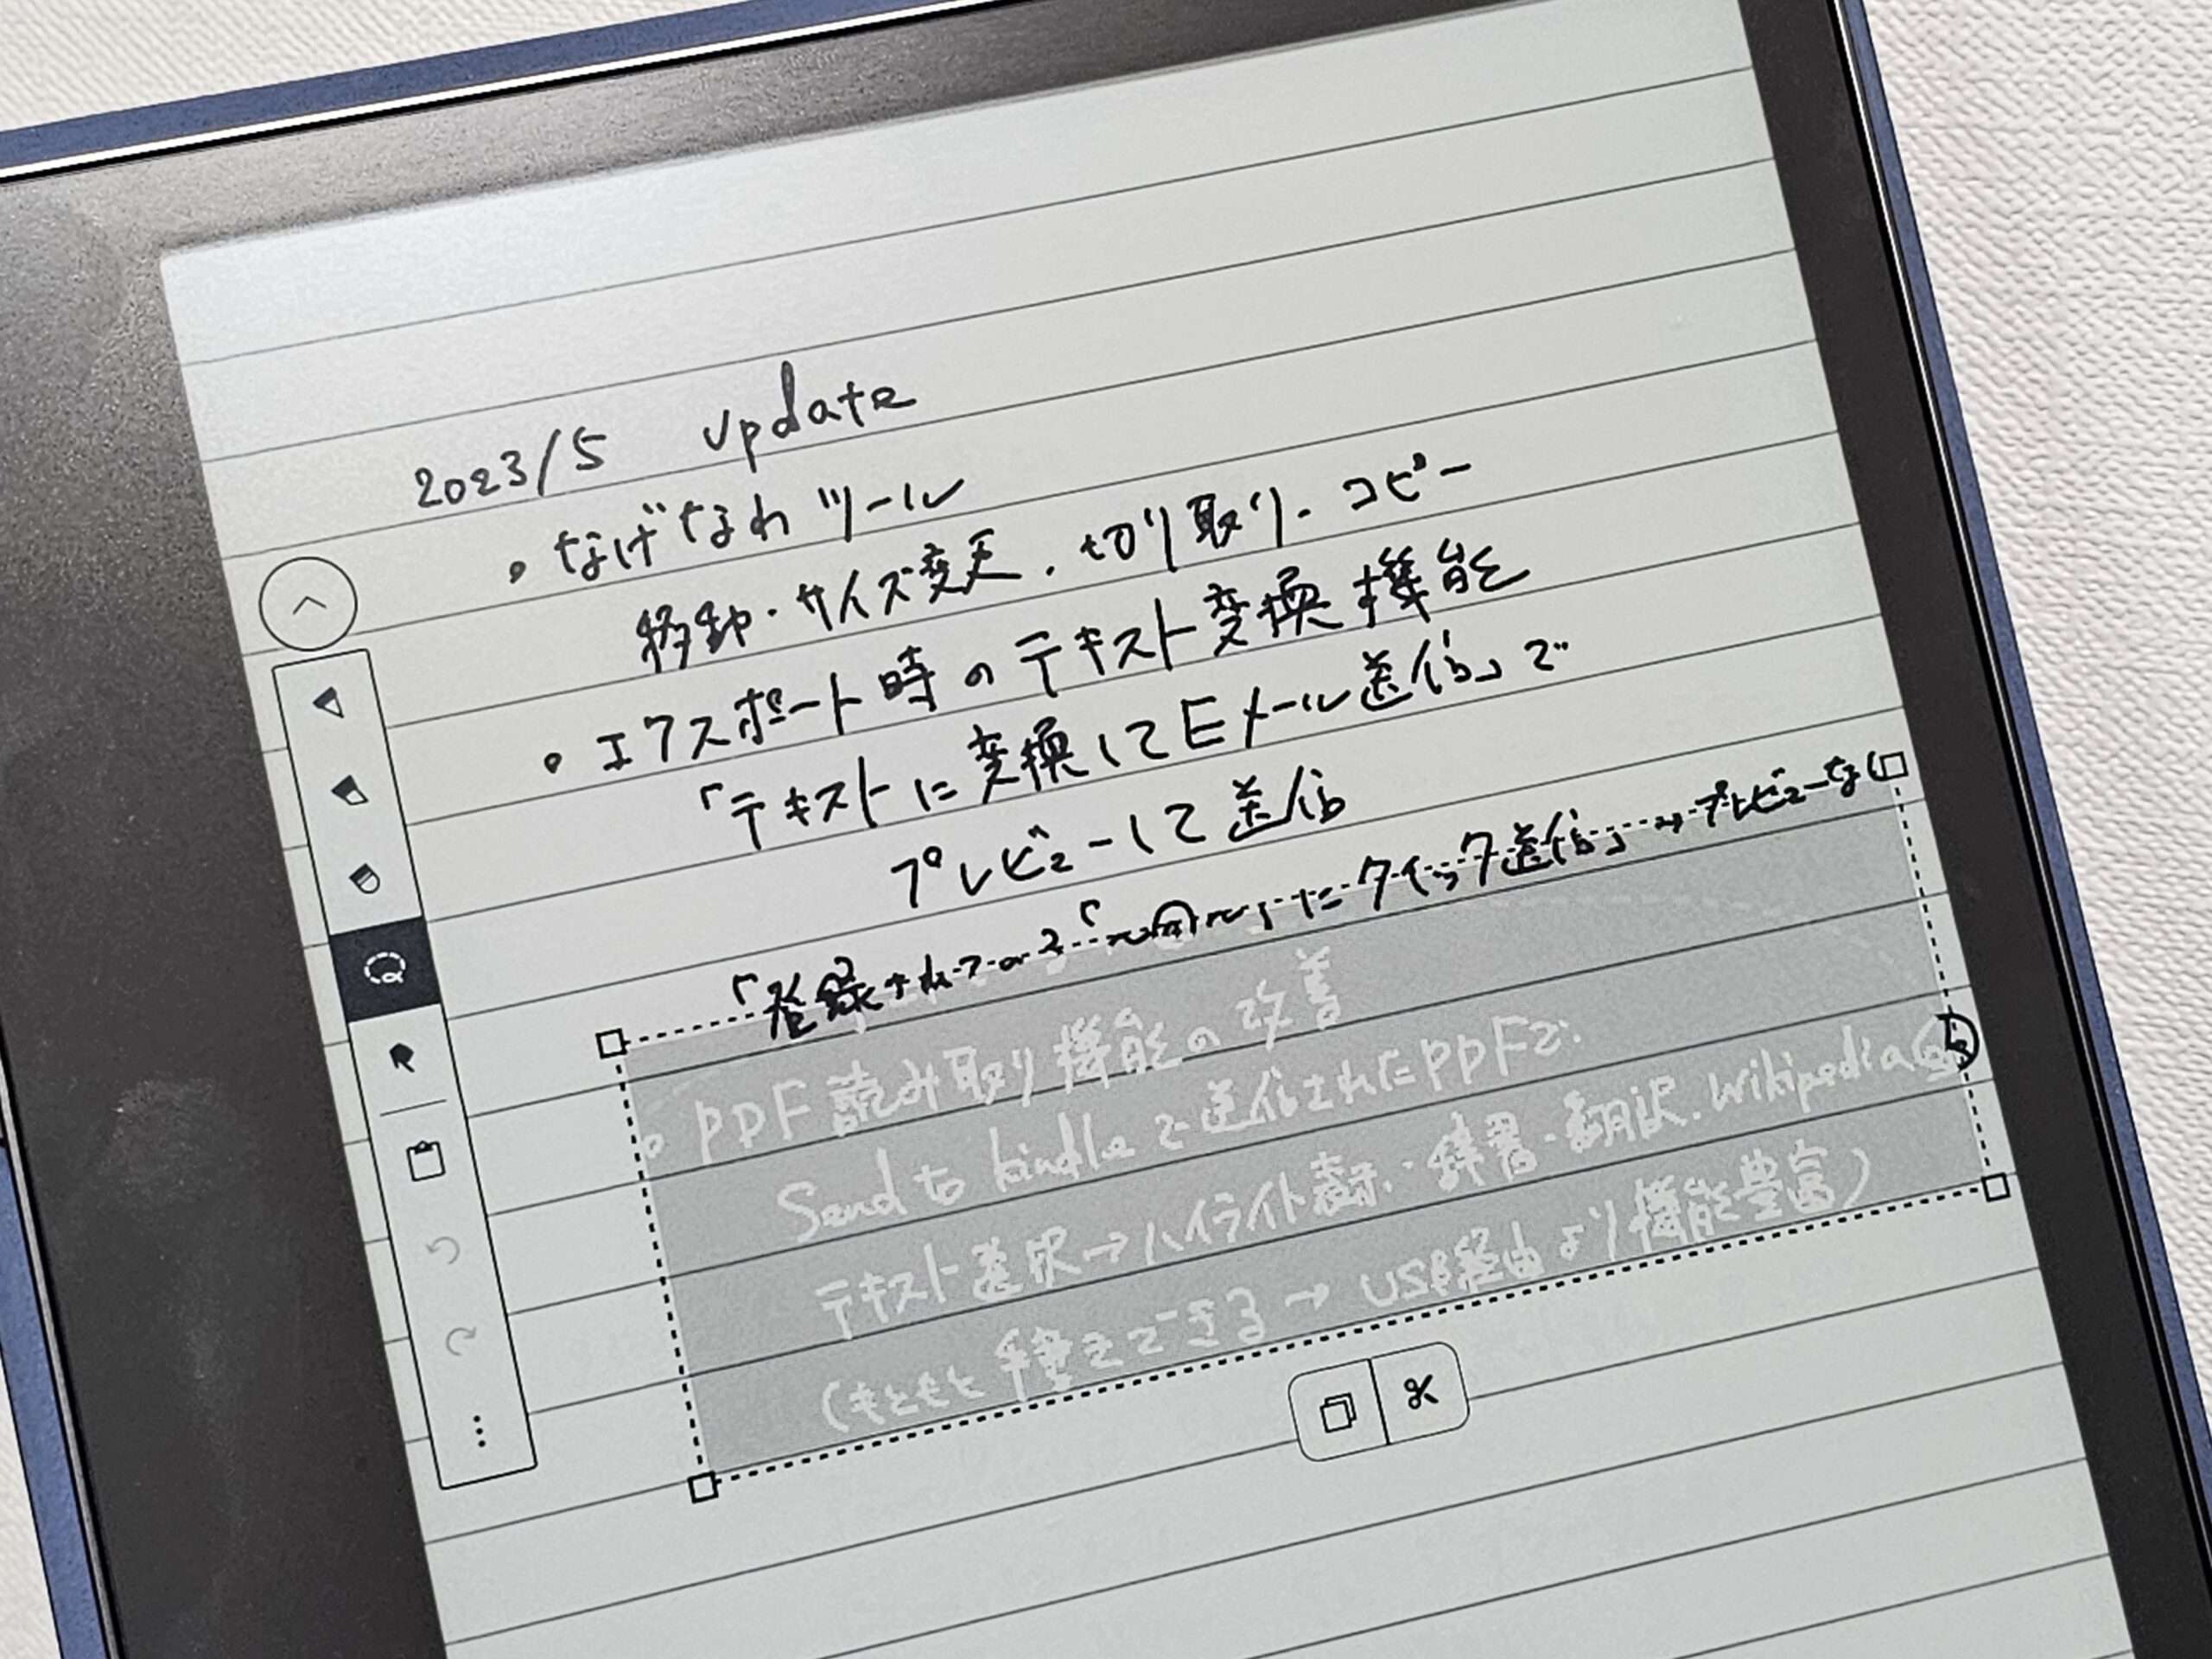 2023/5 update
。なげなわツール
移動・サイズ変更、切り取り、コピー
。エクスポート時のテキスト変換機能
「テキストに変換してEメール送信」で
プレビューして送信
「登録 クイック送信」→プレビューなし
。PDF読み取り機能の改善
Send to kindleで送信されたPDFで、
テキスト選択→ハイライト表示、辞書・翻訳、Wikipedia
(もともと手書きできる→USB経由より機能豊富)